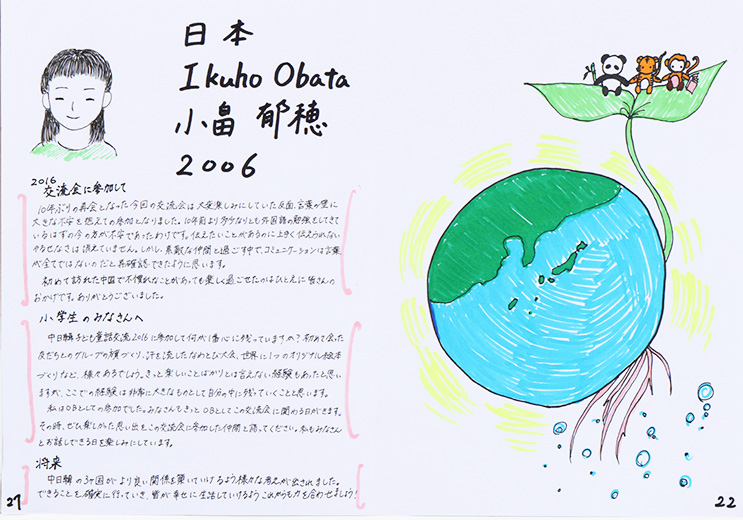 日本
Ikuho Obata
小畠 郁穂
2006
2016
交流会に参加して
10年ぶりの再会となった今回の交流会は大変楽しみにしていた反面、言葉の壁に
大きな不安を抱えての参加となりました。10年前より多少なりとも外国語の勉強をしてきて
いるはずの今の方が不安であったわけです。伝えたいことがあるのに上手く伝えられない
やるせなさは消えていません。しかし、素敵な仲間と過ごす中で、コミュニケーションは言葉
が全てではないのだと再確認できたように思います。
初めて訪れた中国で不慣れなことがあっても楽しく過ごせたのはひとえに皆さんの
おかげです。ありがとうございました。
小学生のみなさんへ
中日韓子ども童話交流2016に参加して何が1番心に残っていますか？初めて会った
友だちとのグループの旗づくり、汗を流したなわとび大会、世界に1つのオリジナル絵本
づくりなど、様々あるでしょう。きっと楽しいことばかりとは言えない経験もあったと思い
ますが、ここでの経験は非常に大きなものとして自分の中に残っていくことと思います。
私はOBとしての参加でした。みなさんもきっとOBとしてこの交流会に関わる日がきます。
その時、ぜひ楽しかった思い出をこの交流会に参加した仲間と語ってください。私もみなさん
とお話しできる日を楽しみにしています。
将来
中日韓の3ヶ国がより良い関係を築いていけるよう、様々な考えが出されました。
できることを、確実に行っていき、皆が幸せに生活していけるようこれからも力を合わせましょう！
21
22